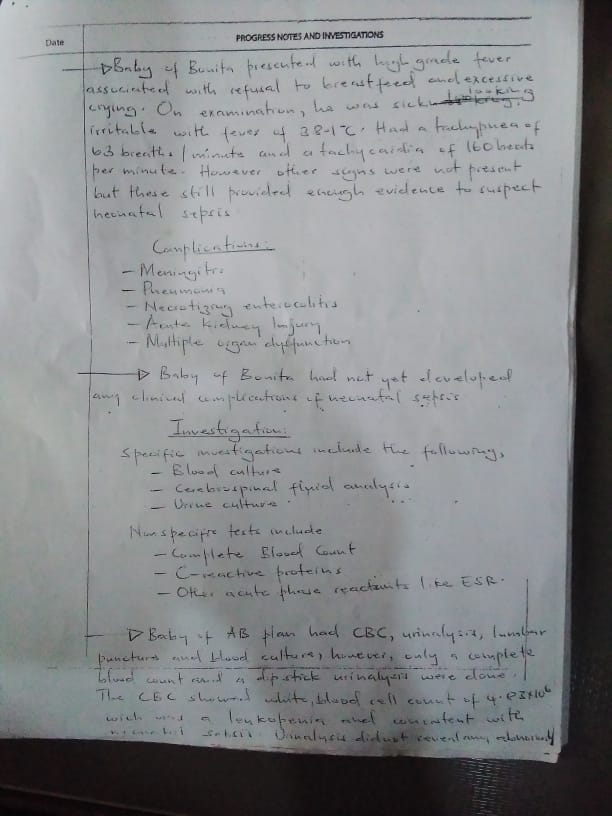 Date
PROGRESS NOTES AND INVESTIGATIONS
Baby of Bonita presented with high grade fever
associated with refusal to breastfeed and excessive
crying. On examination, he was sick looking
irritable with fever of 38.1°C. Had a tachypnea of
63 breaths / minute and a tachycardia of 160 beats
per minute. However other signs were not present
but these still provided enough evidence to suspect
neonatal sepsis
Complications:
- Meningitis
- Pneumonia
- Necrotizing enterocolitis
- Acute kidney Injury
- Multiple organ dysfunction
Baby of Bonita had not yet developed
any clinical complications of neonatal sepsis
Investigation:
Specific investigations include the following,
- Blood culture
- Cerebrospinal fluid analysis
- Urine culture
Non specific tests include
- Complete Blood Count
- C-reactive proteins
- Other acute phase reactants like ESR.
Baby of AB plan had CBC, urinalysis, lumbar
puncture and blood culture, however, only a complete
blood count and a dipstick urinalysis were done.
The CBC showed white blood cell count of
wich was a leukopenia and consistent with
neonatal sepsis. Urinalysis did not reveal any abnormality